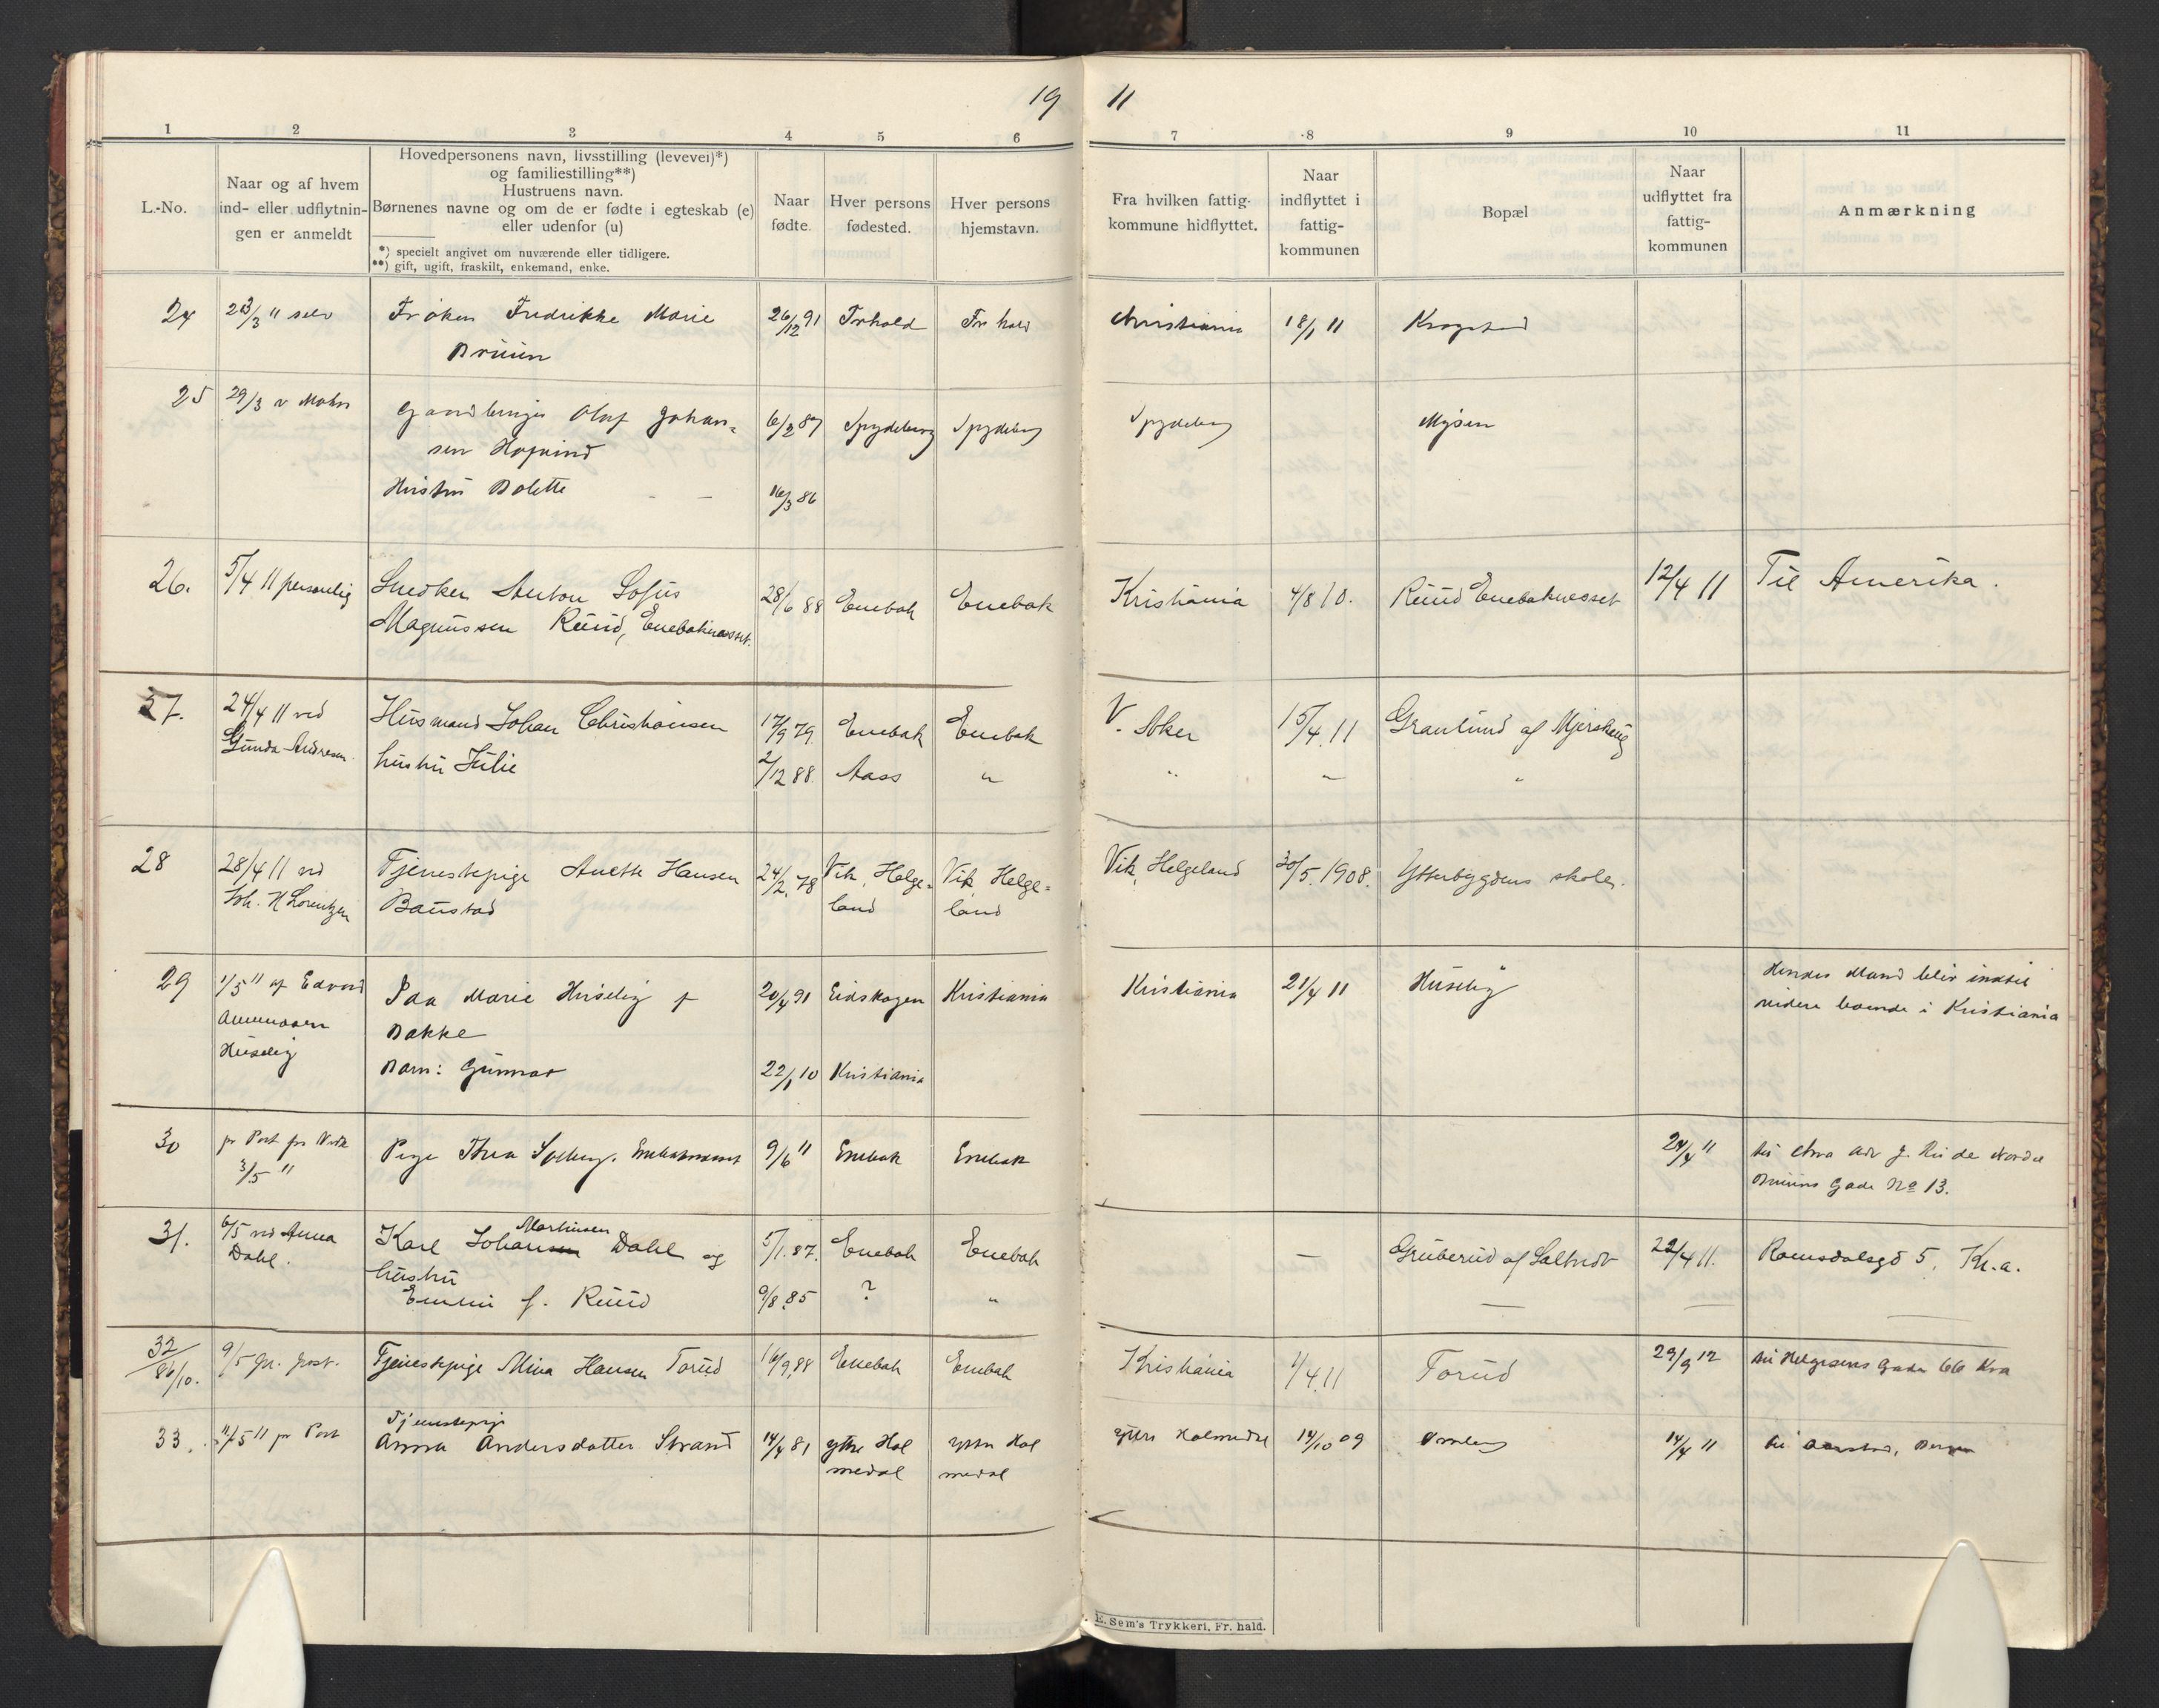 19 11
1 2 3 4 5 6 7 8 9 10 11
L.-No.
Naar og af hvem
ind- eller udflytnin-
gen er anmeldt
Hovedpersonens navn, livsstilling (levevei)*)
og familiestilling**)
Hustruens navn.
Børnenes navne og om de er fødte i egteskab (e)
eller udenfor (u)
*) specielt angivet om nuværende eller tidligere.
**) gift, ugift, fraskilt, enkemand, enke.
Naar
fødte.
Hver persons
fødested.
Hver persons
hjemstavn.
Fra hvilken fattig-
kommune hidflyttet.
Naar
indflyttet i
fattig-
kommunen
Bopæl
Naar
udflyttet fra
fattig-
kommunen
Anmærkning
24 23/3 11 selv Frøken Fredrikke Marie 26/12 91 Frhald Frhald Christiania 18/1 11 Krogstad
Brüün
25 29/3 v Mohn Olaf Johan- 6/2 87 Spydeberg Spydeberg Spydeberg Mysen
sen Hofvind
Hustru Bolette - - 16/3 86
26. 5/4 11 personlig Snedker Anton Sofus 28/6 88 Enebak Enebak Kristiania 4/8 10. Ruud Enebaknesset 12/4 11 Til Amerika.
Magnussen Ruud, Enebaknesset.
27. 24/4 11 ved Husmand Johan Christiansen 17/9 79 Enebak Enebak V. Aker 15/4.11 Granlund af Mjerskaug
Gunda Andresen. hustru Julie 2/12 88. Aass " " " "
28 28/4 11 ved Tjenestepige Anette Hansen 24/2.78 Vik, Helge- Vik, Helge- Vik, Helgeland 30/5.1908. Ytterbygdens skole.
Joh. H Lorentzen Baustad land land
29 1/5 11 af Edvard Ida Marie Huseby f 20/4 91 Eidskogen Kristiania Kristiania 21/4 11 Huseby Hendes Mand blir indtil
Amundsen Bakke videre boende i Kristiania
Huseby Barn: Gunnar 22/1 10 Kristiania
30 pr Post fra 9/6 11 Enebak Enebak 24/4 11
3/5 11 Pige Thea Solberg. Enebaknesset Gade No 13.
31. 6/5 ved Anna Karl Johansen Martinsen Dahl og 5/1.87. Enebak Enebak — Gruberud af Saltvedt 22/4 11. Romsdalsgd 5, Kr.a.
Dahl. hustru
Emilie f. Ruud 9/8.85 ? " — —
32/86/10. 9/5 pr. post. Tjenestepige Mina Hansen Torud 16/9.88 Enebak Enebak Kristiania 1/4.11 Torud 29/9 12 til Helgesens Gade 66 Kra
33. 11/5 11 pr Post Tjenestepige
Anna Andersdatter Strand 14/4 81 ytre Hol ytre Hol ytre Holmedal 14/10 09 14/4 11 til
medal medal
E. Sem's Trykkeri, Fr. hald.